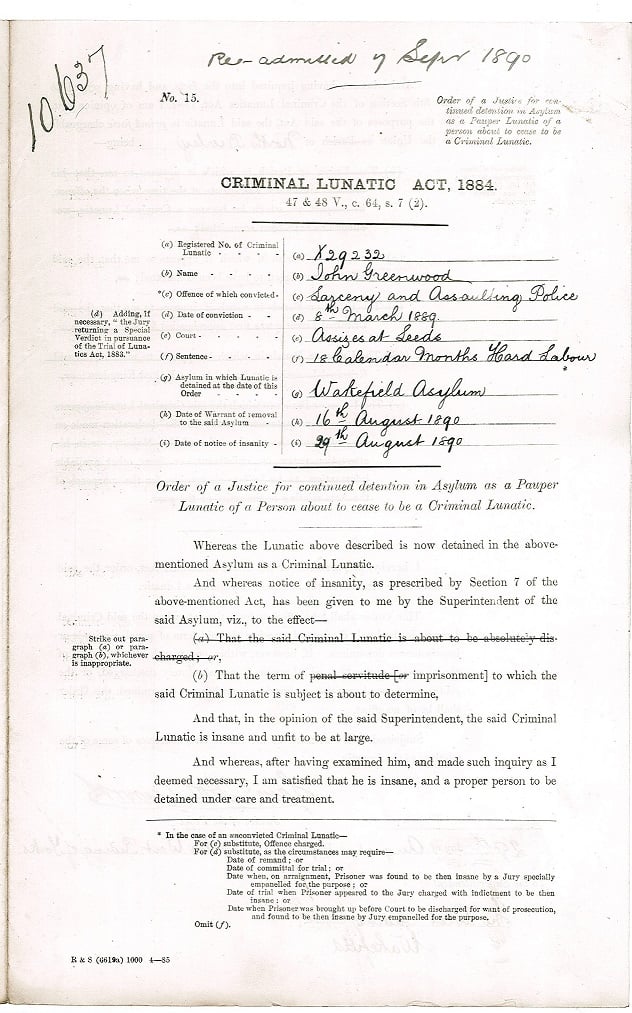 10.637
Re-admitted 7 Sepr 1890
No. 15.
Order of a Justice for con-
tinued detention in Asylum
as a Pauper Lunatic of a
person about to cease to be
a Criminal Lunatic.
CRIMINAL LUNATIC ACT, 1884.
47 & 48 V., c. 64, s. 7 (2).
(a) Registered No. of Criminal
Lunatic - - - - (a) X29232
(b) Name - - - - (b) John Greenwood
*(c) Offence of which convicted- (c) Larceny and Assaulting Police
(d) Adding, if
necessary, "the Jury
returning a Special
Verdict in pursuance
of the Trial of Luna-
tics Act, 1883."
(d) Date of conviction - - (d) 8th March 1889.
(e) Court - - - - (e) Assizes at Leeds
(f) Sentence - - - - (f) 18 Calendar Months Hard Labour
(g) Asylum in which Lunatic is
detained at the date of this
Order - - - - (g) Wakefield Asylum
(h) Date of Warrant of removal
to the said Asylum - (h) 16th August 1890
(i) Date of notice of insanity - (i) 29th August 1890
Order of a Justice for continued detention in Asylum as a Pauper
Lunatic of a Person about to cease to be a Criminal Lunatic.
Whereas the Lunatic above described is now detained in the above-
mentioned Asylum as a Criminal Lunatic.
And whereas notice of insanity, as prescribed by Section 7 of the
above-mentioned Act, has been given to me by the Superintendent of the
said Asylum, viz., to the effect—
Strike out para-
graph (a) or para-
graph (b), whichever
is inappropriate.
(a) That the said Criminal Lunatic is about to be absolutely dis-
charged; or,
(b) That the term of penal servitude [or imprisonment] to which the
said Criminal Lunatic is subject is about to determine,
And that, in the opinion of the said Superintendent, the said Criminal
Lunatic is insane and unfit to be at large.
And whereas, after having examined him, and made such inquiry as I
deemed necessary, I am satisfied that he is insane, and a proper person to be
detained under care and treatment.
* In the case of an unconvicted Criminal Lunatic—
For (c) substitute, Offence charged.
For (d) substitute, as the circumstances may require—
Date of remand; or
Date of committal for trial; or
Date when, on arraignment, Prisoner was found to be then insane by a Jury specially
empanelled for the purpose; or
Date of trial when Prisoner appeared to the Jury charged with indictment to be then
insane; or
Date when Prisoner was brought up before Court to be discharged for want of prosecution,
and found to be then insane by Jury empanelled for the purpose.
Omit (f).
R & S (6619a) 1000 4—85